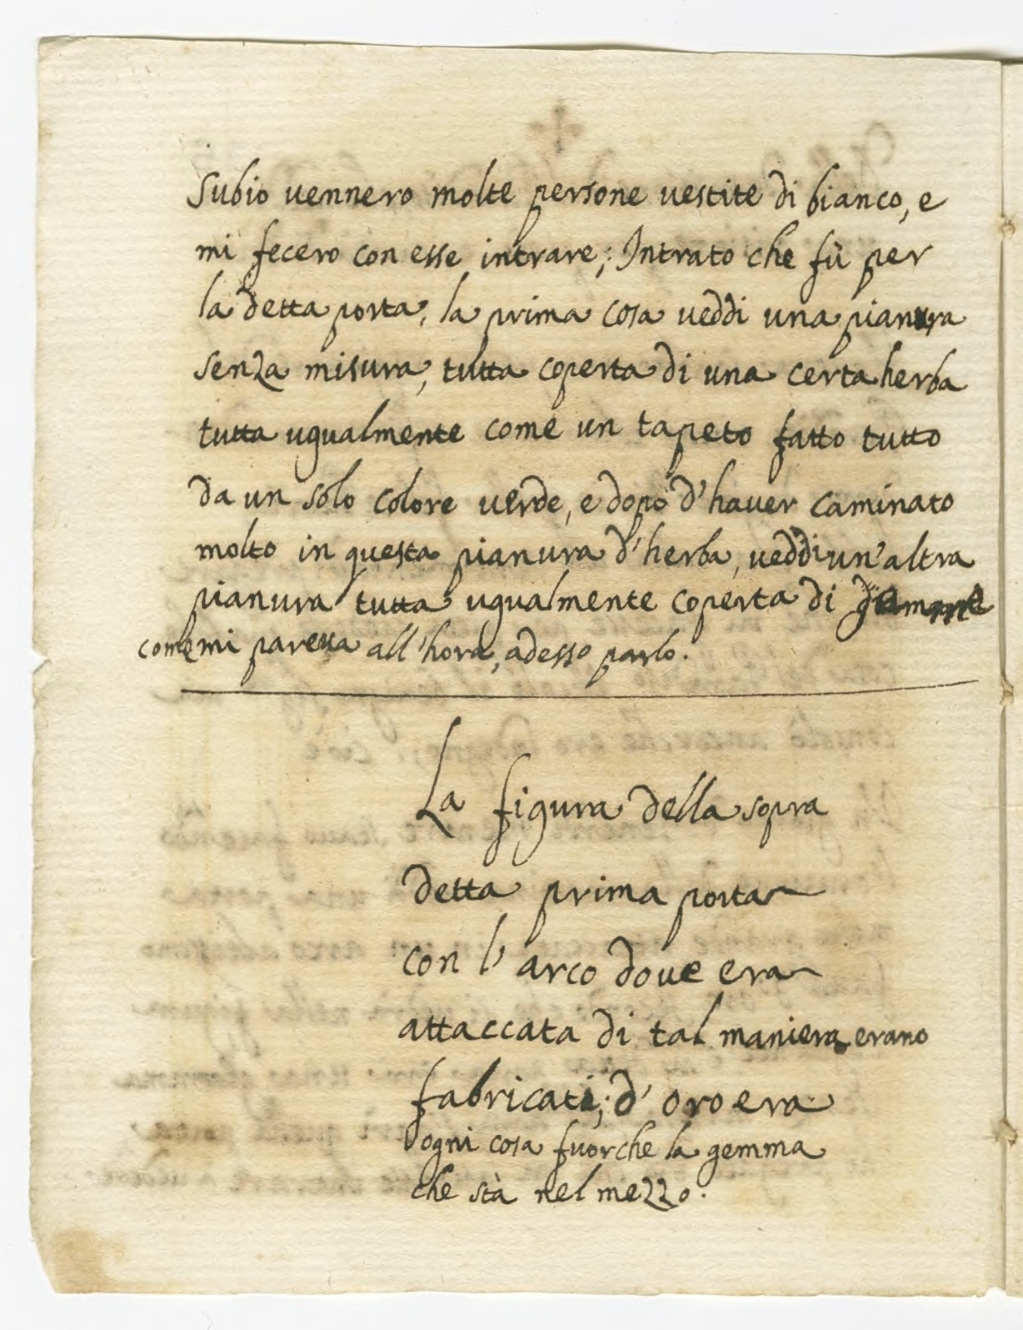 Subio vennero molte persone vestite di bianco, e
mi fecero con esse intrare; Intrato che fù per
la detta porta, la prima cosa veddi una pianura
senza misura, tutta coperta di una certa herba
tutta ugualmente come un tapeto fatto tutto
da un solo colore verde, e dopò d'haver caminato
molto in questa pianura d'herba, veddi un'altra
pianura tutta ugualmente coperta di
come mi pareva all'hora, adesso parlo.
La figura della sopra
detta prima porta
con l'arco dove era
attaccata di tal maniera erano
fabricati; d'oro era
ogni cosa fuorche la gemma
che stà nel mezzo.